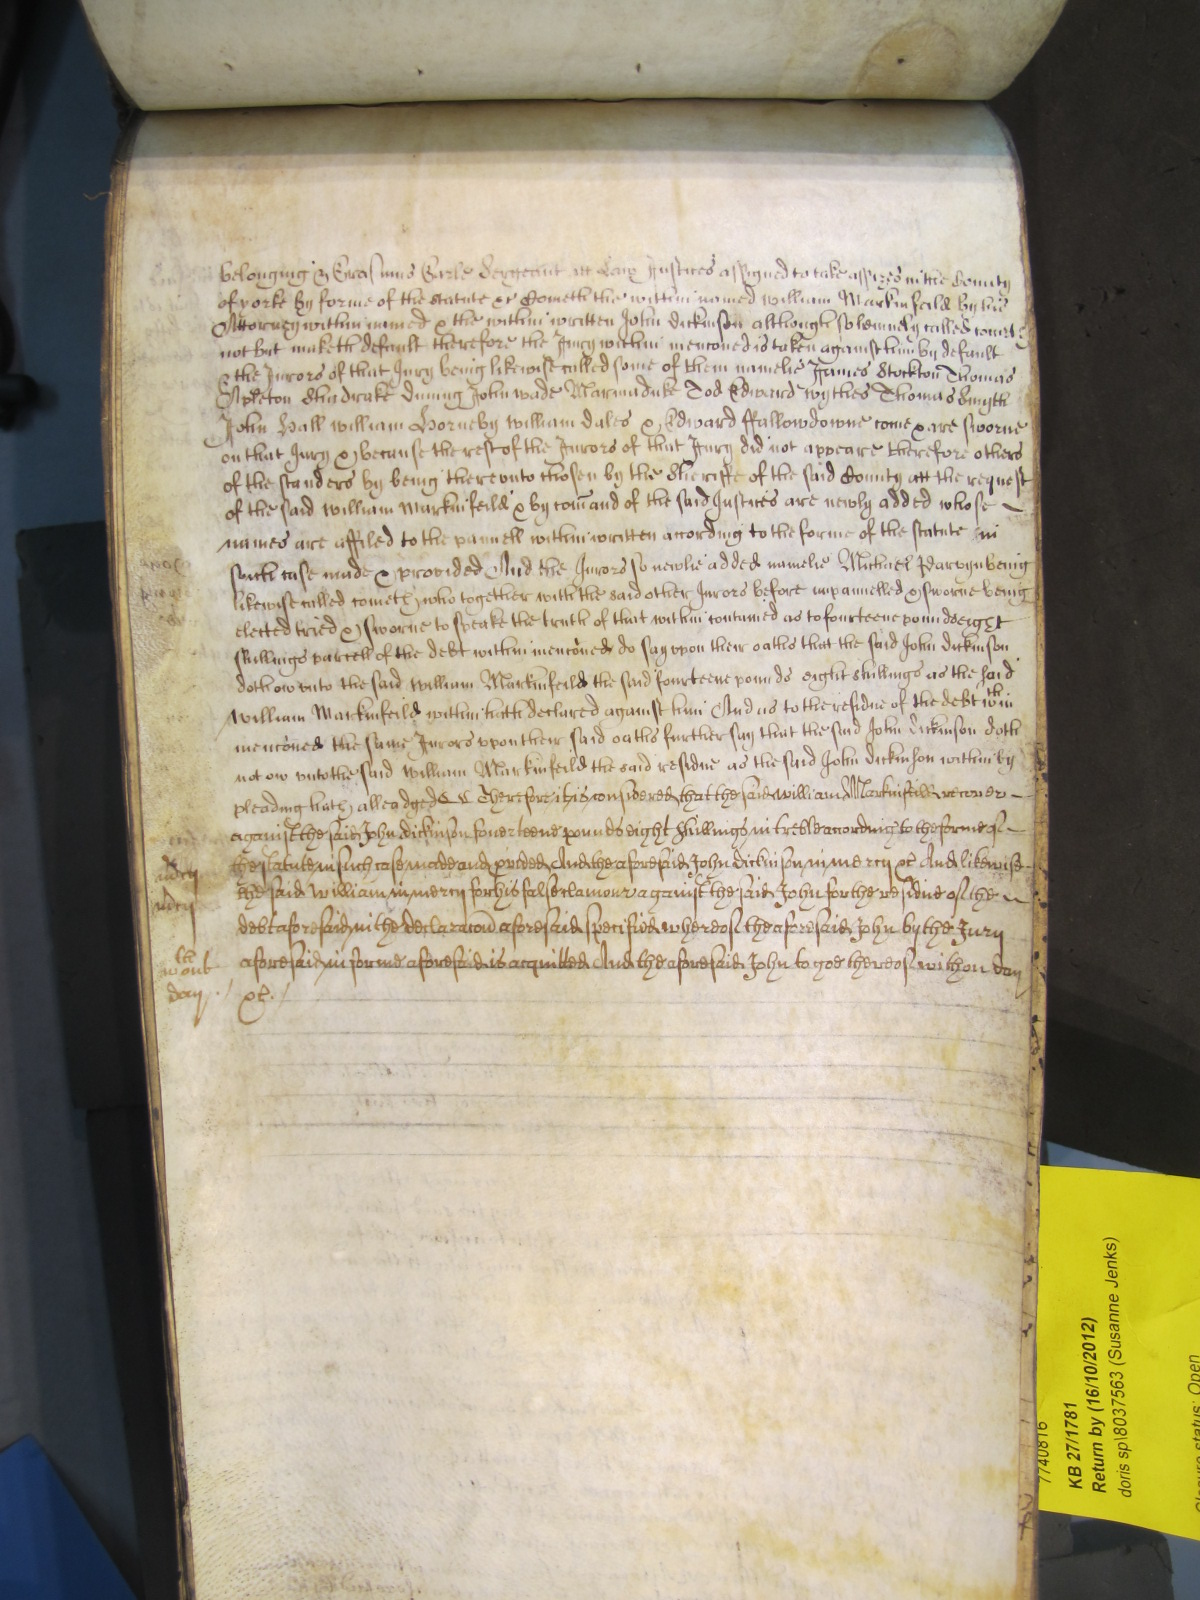 belonging & Erasmus Earle Sergeant att Law Justices assigned to take assizes in the County
of yorke by forme of the Statute &c Cometh the within named William Markinfeild by his
Attorney within named & the within written John Dickinson although solemnely called cometh
not but maketh default therefore the Jury within menconed is taken against him by default
& the Jurors of that Jury being likewise called some of them namelie James Stockton Thomas
Apleton drake John wade Marmaduke Tod Edward wythes Thomas Smyth
John Hall William Horneby William Dales & Edward ffallowdowne come & are sworne
on that Jury & because the rest of the Jurors of that Jury did not appeare therefore others
of the standers by being therevnto chosen by the Sheriffe of the said County att the request
of the said William Markinfeild & by comand of the said Justices are newly added whose
names are affiled to the pannell within written according to the forme of the statute in
such case made & provided And the Jurors so newlie added namelie Michael being
likewise called cometh who together with the said other Jurors before impannelled & sworne being
elected tried & sworne to speake the truth of that within contained as to fourteene pounds eight
shillings parcell of the debt within menconed do say vpon their oaths that the said John Dickinson
doth ow vnto the said William Markinfeild the said fourteene pounds eight shillings as the said
William Markinfeild within hath declared against him And as to the residue of the debt wthin
menconed the same Jurors vpon their said oaths further say that the said John Dickinson doth
not ow vnto the said William Markinfeild the said residue as the said John Dickinson within by
pleading hath alleadged &c Therefore it is considered that the said William Markinfeild recover
against the said John Dickinson fourteene pounds eight shillings in treble according to the forme of
the statute in such case made and pvided And the aforesaid John Dickinson in mercy &c And likewise
mercy
the said William in mercy for his false clamour against the said John for the residue of the
mercy
debt aforesaid in the declaracon aforesaid specified whereof the aforesaid John by the Jury
aforesaid in forme aforesaid is acquitted And the aforesaid John to goe thereof without day
wthout
day
&c.
7740816
KB 27/1781
Return by (16/10/2012)
doris sp\8037563 (Susanne Jenks)
Closure status: Open